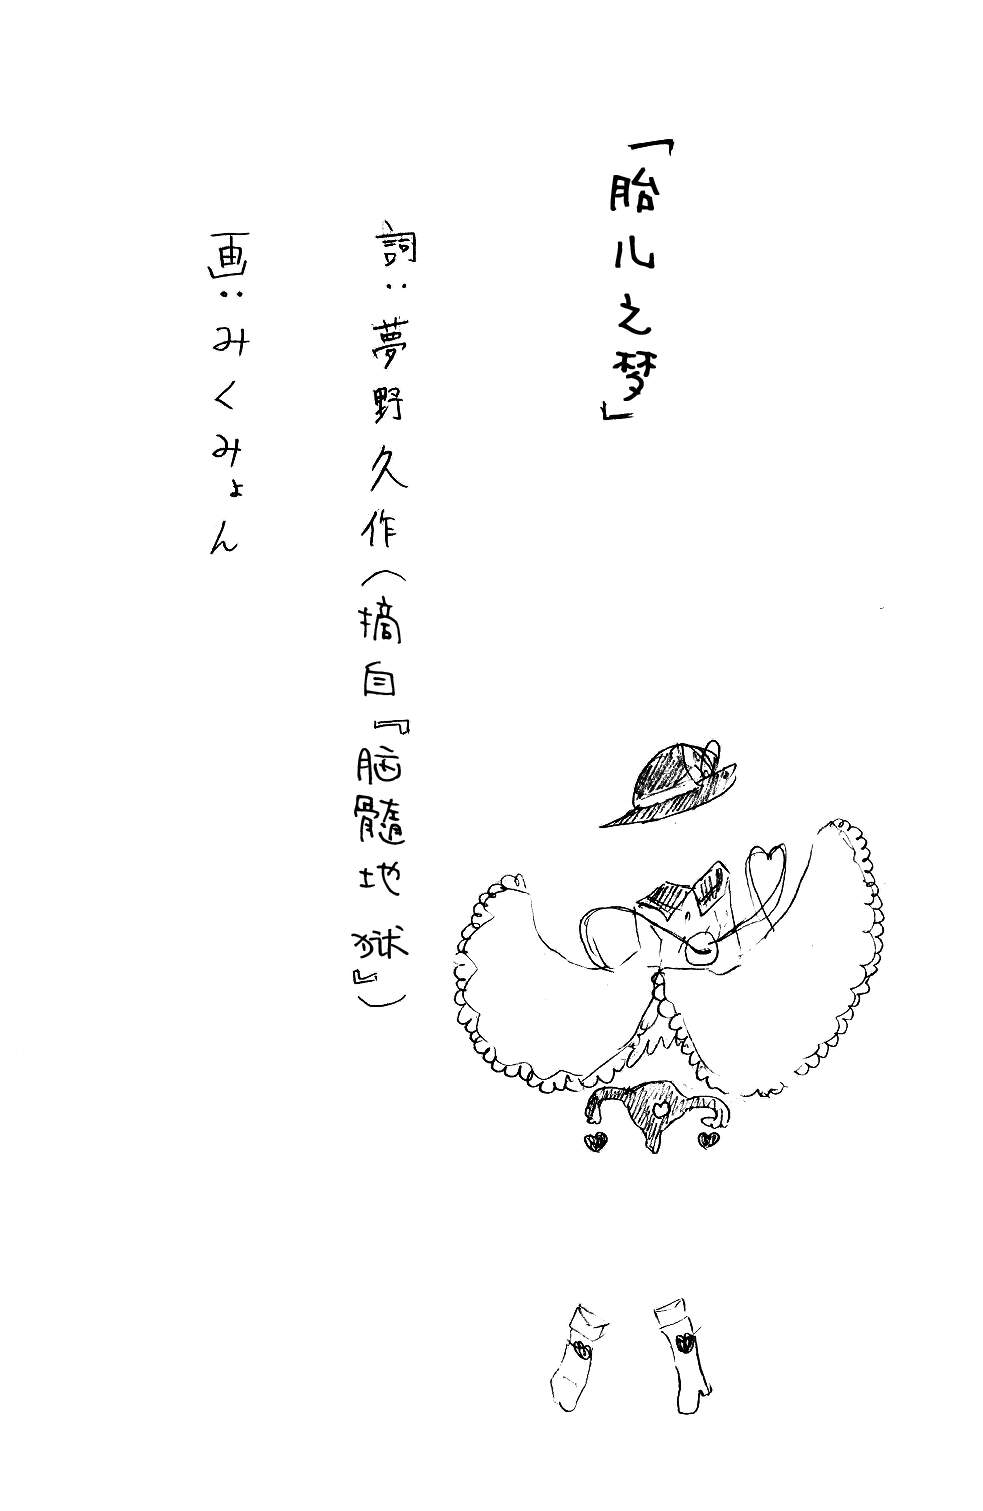 「胎儿之梦」
詞：夢野久作（摘自『脳髓地獄』）
画：みくみょん